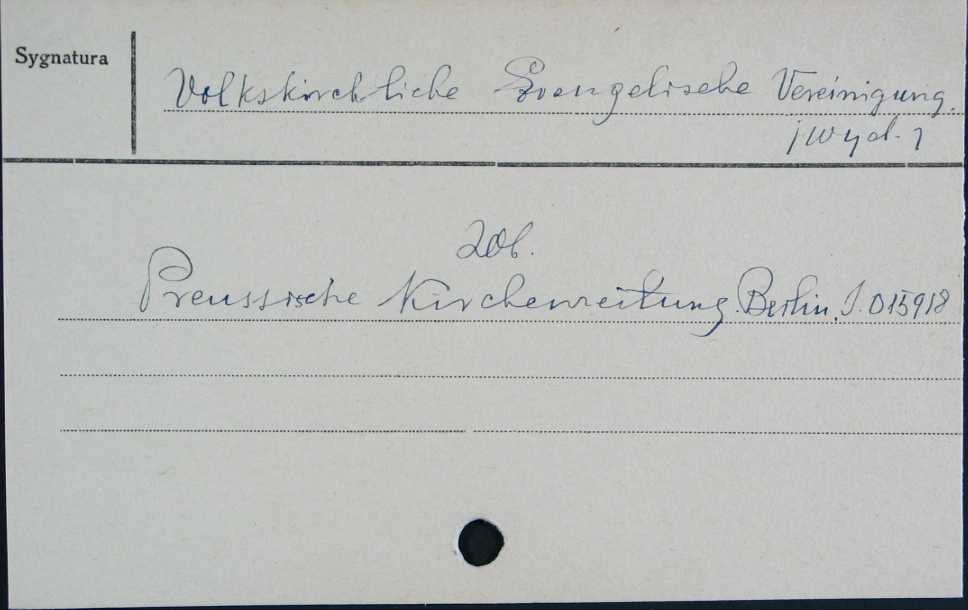 Sygnatura
Volkskirchliche Evangelische Vereinigung.
/Wyd./
Zob.
Preussische Kirchenzeitung. Berlin. S. 015918